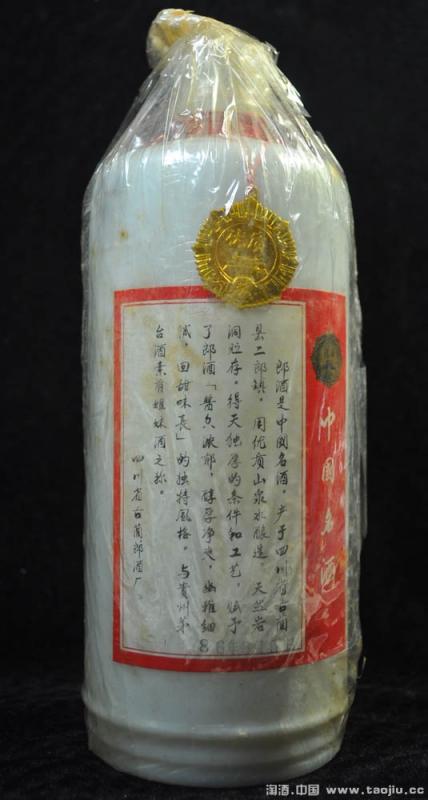 中国名酒
郎酒是中国名酒，产于四川省古蔺
县二郎镇，用优质山泉水酿造，天然岩
洞贮存。得天独厚的条件和工艺，赋予
了郎酒「酱香浓郁，醇厚净爽，幽雅细
腻，回甜味长」的独特风格。与贵州茅
台酒素有姐妹酒之称。
四川省古蔺郎酒厂
淘酒.中国 www.taojiu.cc